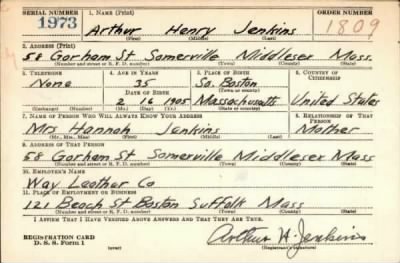 SERIAL NUMBER 1. NAME (Print) ORDER NUMBER
1973 Arthur Henry Jenkins 1809
(First) (Middle) (Last)
2. ADDRESS (Print)
58 Gorham St Somerville Middlesex Mass.
(Number and street or R. F. D. number) (Town) (County) (State)
3. TELEPHONE 4. AGE IN YEARS 5. PLACE OF BIRTH 6. COUNTRY OF CITIZENSHIP
None 35 So. Boston
DATE OF BIRTH (Town or county)
2 16 1905 Massachusetts United States
(Exchange) (Number) (Mo.) (Day) (Yr.) (State or country)
7. NAME OF PERSON WHO WILL ALWAYS KNOW YOUR ADDRESS 8. RELATIONSHIP OF THAT PERSON
Mrs Hannah Jenkins Mother
(Mr., Mrs., Miss) (First) (Middle) (Last)
9. ADDRESS OF THAT PERSON
58 Gorham St Somerville Middlesex Mass
(Number and street or R. F. D. number) (Town) (County) (State)
10. EMPLOYER'S NAME
Way Leather Co
11. PLACE OF EMPLOYMENT OR BUSINESS
121 Beach St Boston Suffolk Mass
(Number and street or R. F. D. number) (Town) (County) (State)
I AFFIRM THAT I HAVE VERIFIED ABOVE ANSWERS AND THAT THEY ARE TRUE.
REGISTRATION CARD
D. S. S. Form 1 (over) Arthur H. Jenkins
(Registrant's signature)